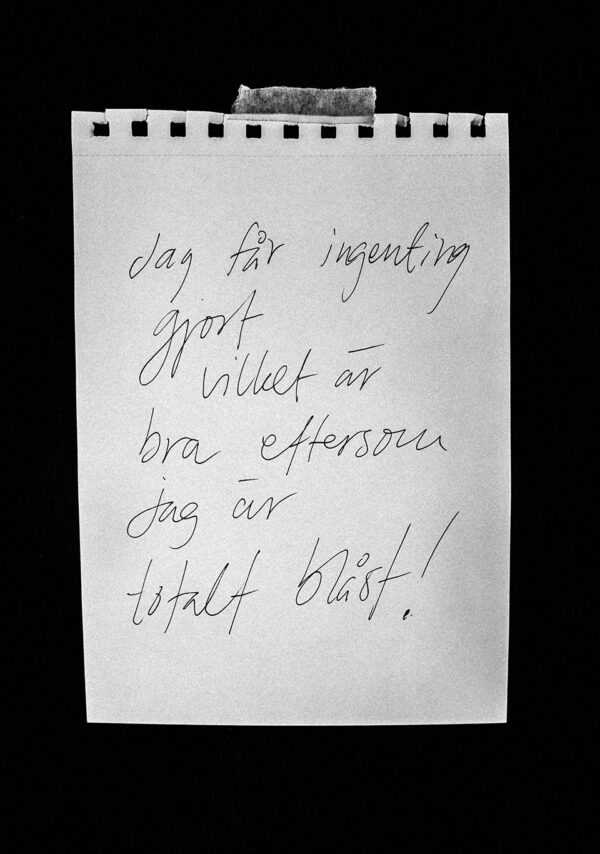 Jag får ingenting
gjort
vilket är
bra eftersom
jag är
totalt blåst!